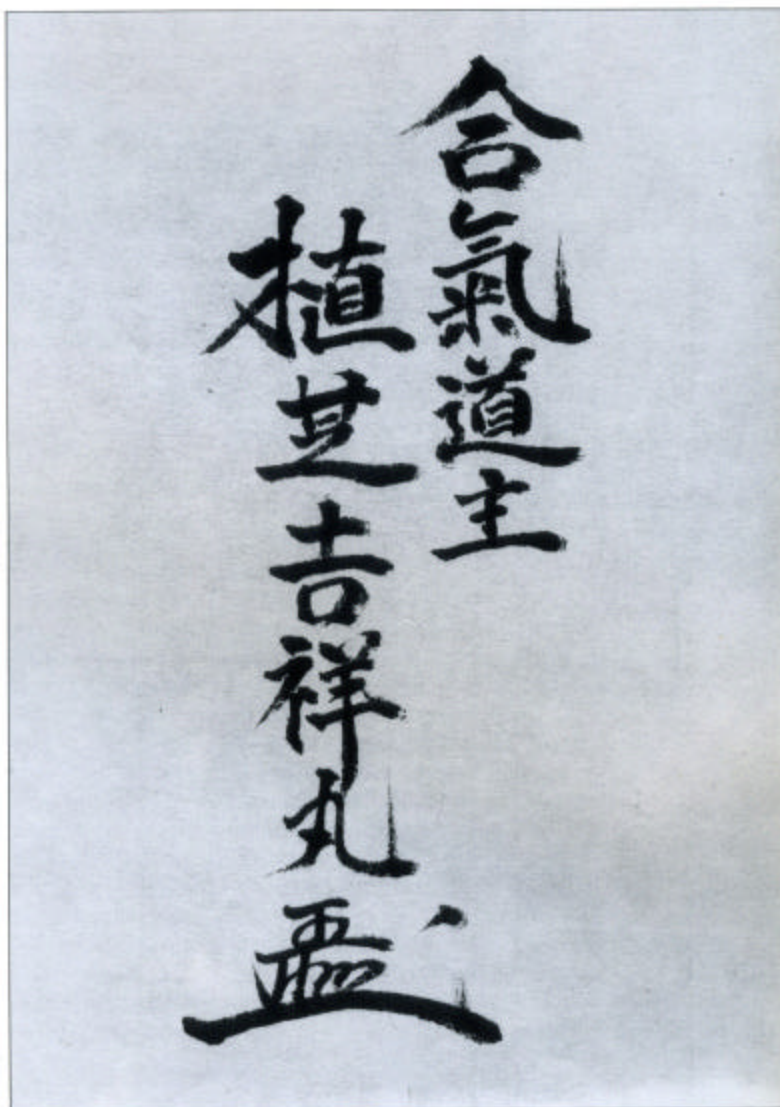 合氣道主
植芝吉祥丸